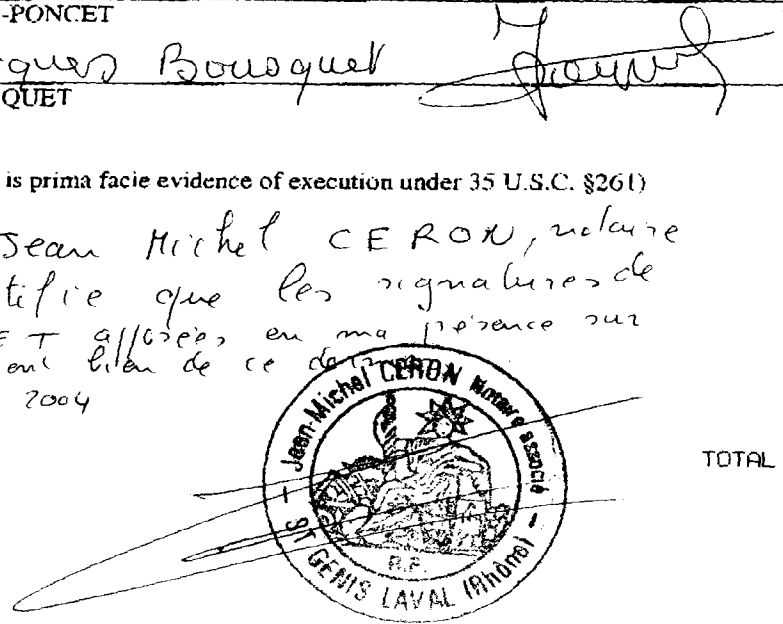 -PONCET
ques Bousquet
QUET
is prima facie evidence of execution under 35 U.S.C. §261)
Jean Michel CERON, notaire
tifie que les signatures de
ET apposées en ma présence sur
ent bien de ce
2004
Jean-Michel CERON Notaire associé
R.F.
- ST GENIS LAVAL (Rhône) -
TOTAL